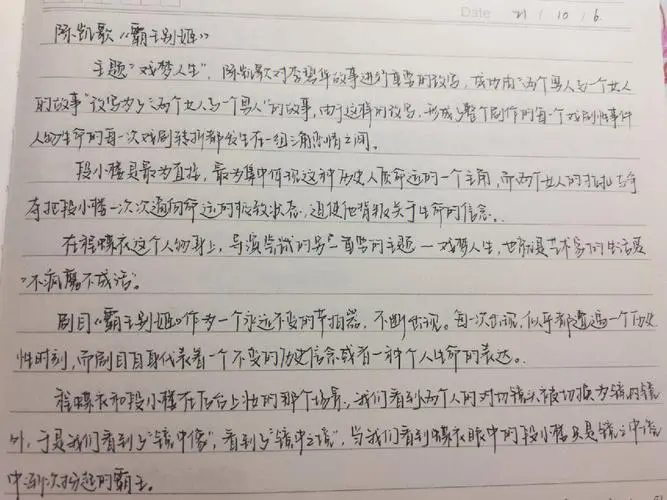 Date 21 / 10 / 6.
陈凯歌《霸王别姬》
主题"戏梦人生",陈凯歌对李碧华故事进行重要的改写,成功由"两个男人与一个女人
的故事"改写为了"两个女人与一个男人"的故事,由于这样的改写,形成了整个剧作的每一个戏剧性事件
人物生命的每一次戏剧转折都发生在一组三角恋情之间。
段小楼是最为直接,最为集中体现这种历史人质命运的一个主角,而两个女人的争
夺把段小楼一次次逼向命运的状态,迫使他背叛关于生命的信念。
在程蝶衣这个人物身上,导演尝试的另一重要的主题一戏梦人生,也就是艺术家的生活是
"不疯魔不成活"。
剧目《霸王别姬》作为一个永远不变的节拍器,不断出现。每一次出现,似乎都遭遇一个历史
性时刻,而剧目自身代表着一个不变的历史信念或者一种个人生命的表达。
程蝶衣和段小楼在后台上妆的那个场景,我们看到两个人的对切镜头被切换为镜内镜
外,于是我们看到了"镜中像",看到了"镜中之镜",当我们看到蝶衣眼中的段小楼只是镜之中镜
中再次扮起的霸王。